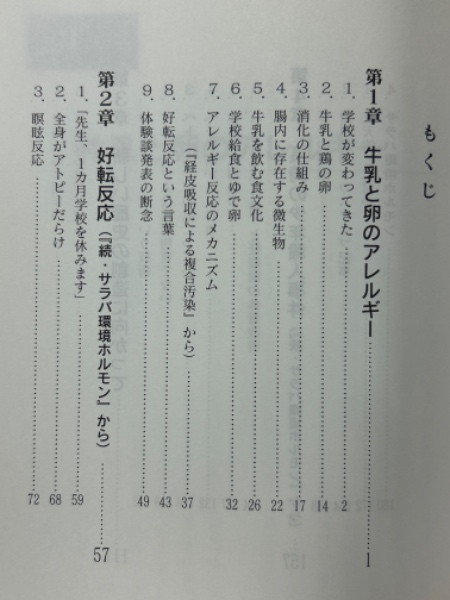 もくじ
第1章 牛乳と卵のアレルギー……1
1. 学校が変わってきた……2
2. 牛乳と鶏の卵……14
3. 消化の仕組み……17
4. 腸内に存在する微生物……22
5. 牛乳を飲む食文化……26
6. 学校給食とゆで卵……32
7. アレルギー反応のメカニズム
(『経皮吸収による複合汚染』から)……37
8. 好転反応という言葉……43
9. 体験談発表の断念……49
第2章 好転反応(『続・サラバ環境ホルモン』から)……57
1. 「先生、1カ月学校を休みます」……59
2. 全身がアトピーだらけ……68
3. 瞑眩反応……72